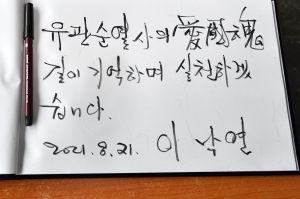 유관순열사의 愛國魂
길이 기억하며 실천하겠
습니다.
2021.8.21. 이낙연